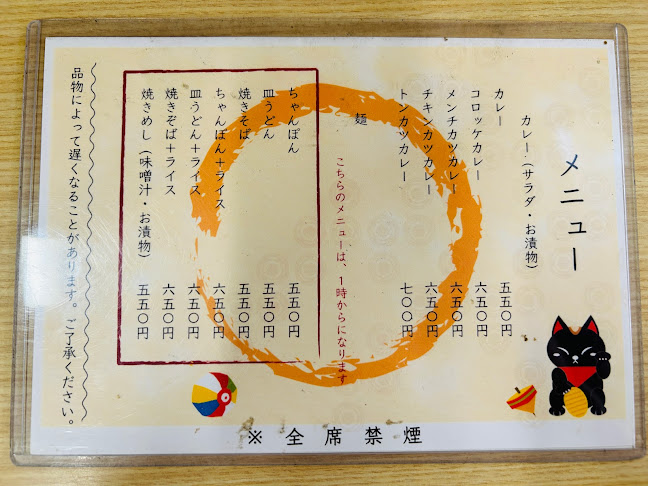 メニュー
カレー（サラダ・お漬物）
カレー 五五〇円
コロッケカレー 六五〇円
メンチカツカレー 六五〇円
チキンカツカレー 六五〇円
トンカツカレー 七〇〇円
麺
こちらのメニューは、1時からになります
ちゃんぽん 五五〇円
皿うどん 五五〇円
焼きそば 五五〇円
ちゃんぽん＋ライス 六五〇円
皿うどん＋ライス 六五〇円
焼きそば＋ライス 六五〇円
焼きめし（味噌汁・お漬物） 五五〇円
品物によって遅くなることがあります。ご了承ください。
※全席禁煙